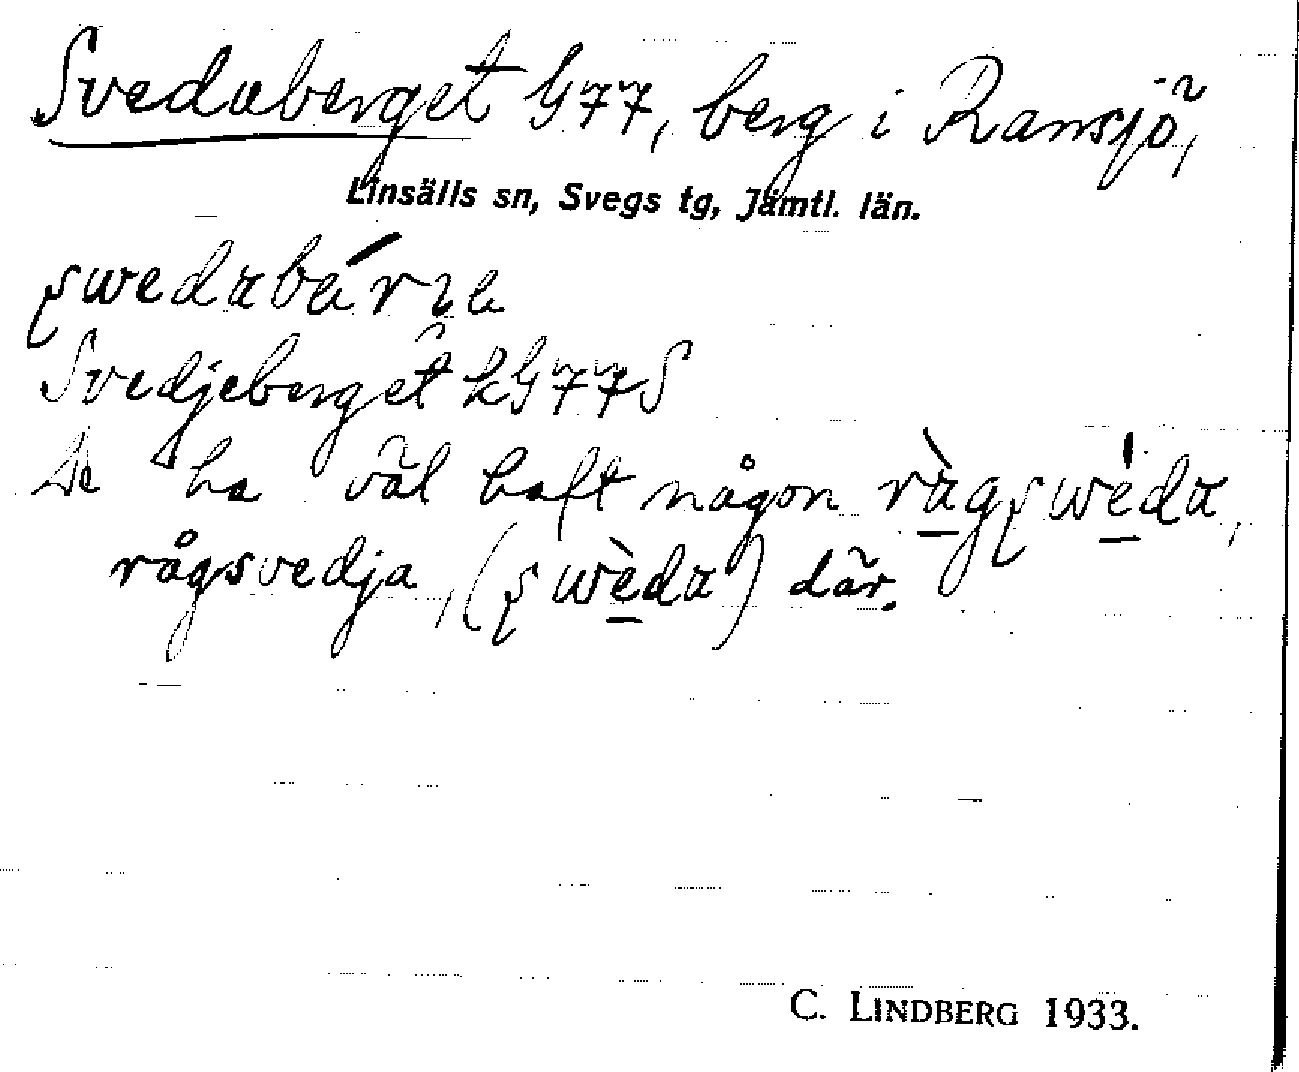 Svedaberget G77, berg i Ransjö,
Linsälls sn, Svegs tg, Jämtl. län.
swedabárıe
Svedjeberget LG77S
De ha väl haft någon ràgswéda,
rågsvedja, (swèda) där.
C. LINDBERG 1933.